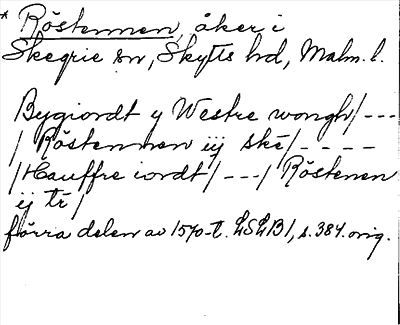 * Röstennen, åker i
Skegrie sn, Skytts hd, Malm. l.
Bygiordt y Westre wongh/---
/ Röstennen iij ské/----
/Hauffre iordt/---/ Röstenen
ij tr/
förra delen av 1570-t. LSLB1, s. 384. orig.